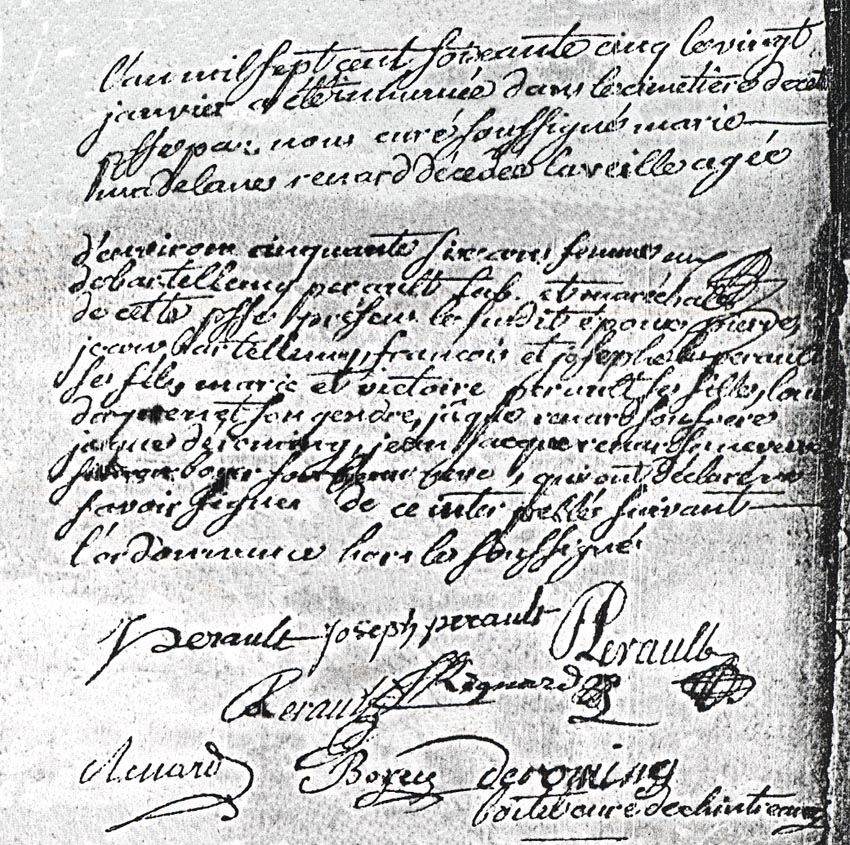 l'an mil sept cent soixante cinq le vingt
janvier a été inhumée dans le cimetière de cette
psse par nous curé soussigné marie
madelaine renard décédée la veille agée
d'environ cinquante six ans femme
de bartellemy perault et maréchal
de cette psse présens le susdit époux pierre
jean bartellemy françois et joseph les perault
ses fils, marie et victoire perault ses filles,
son gendre, jâque renard son frère
jaque deroming, jean jacque renard son neveu
boyer son frère, qui ont déclaré ne
savoir signer de ce interpellés suivant
l'ordonnance hors les soussignés
Perault Joseph perault Perault
Perault Regnard
Renard Boyer deroming
curé de chintreaux